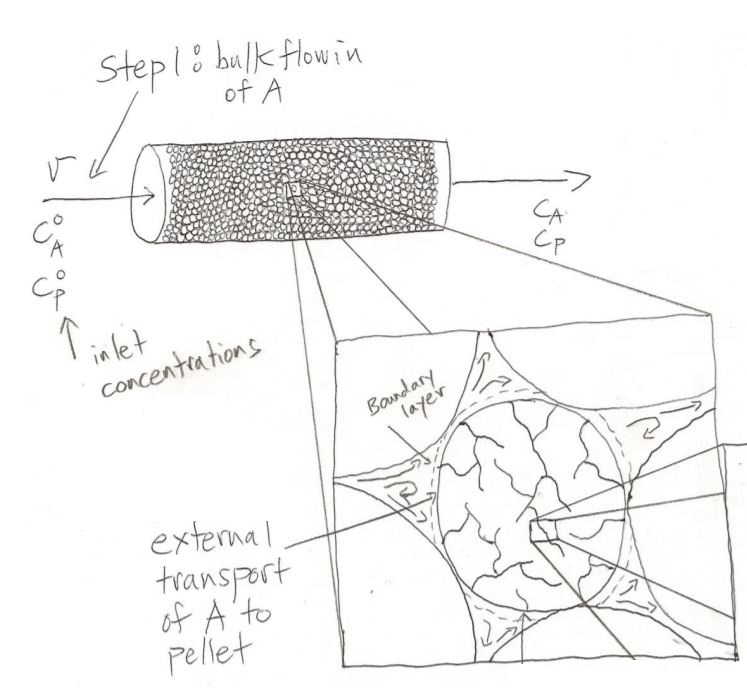 Step 1: bulk flow in
of A
v
C°A
C°P
inlet
concentrations
CA
CP
Boundary
layer
external
transport
of A to
pellet